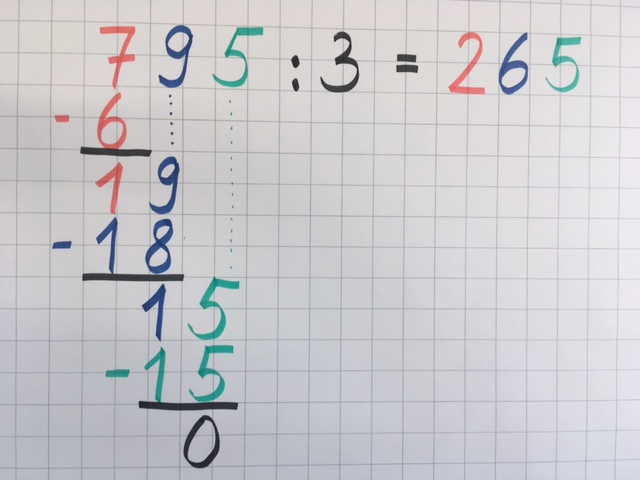 795 : 3 = 265
- 6
19
- 18
15
- 15
0